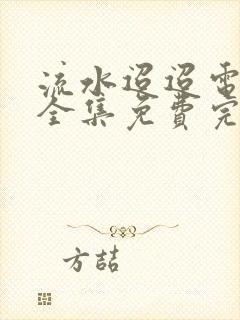 流水迢迢电
全集免費完
方喆